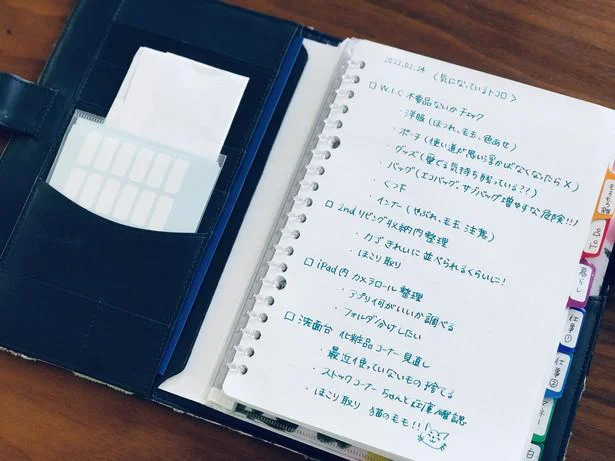 2022.02.24 〈気になっているトコロ〉
□ W.I.C 不要品ないかチェック
・洋服(ほつれ、毛玉、色あせ)
・ポーチ(使い道が思い浮かばなくなったら×)
・グッズ(愛でる気持ち残っている??)
・バッグ(エコバッグ、サブバッグ増やすな危険!!!)
・くつ下
・インナー(やぶれ、毛玉 注意)
□ 2nd リビング収納内整理
・カゴきれいに並べられるくらいに!
・ほこり取り
□ iPad内 カメラロール整理
・アプリ何がいいか調べる
・フォルダ分けしたい
□ 洗面台 化粧品コーナー見直し
・最近使っていないもの捨てる
・ストックコーナーちゃんと在庫確認
・ほこり取り 猫のモモ!!
暮らし
仕事①
仕事②
ネー
白